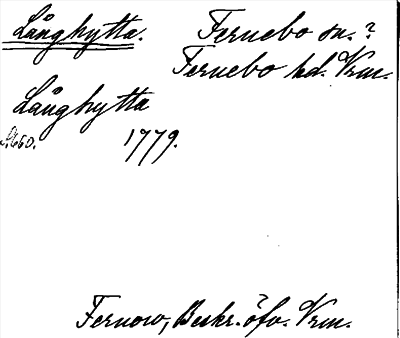 Långhytta. Fernebo sn.?
Fernebo hd. Vrm.
Långhytta
S. 660. 1779.
Fernow, Beskr. öfv. Vrm.